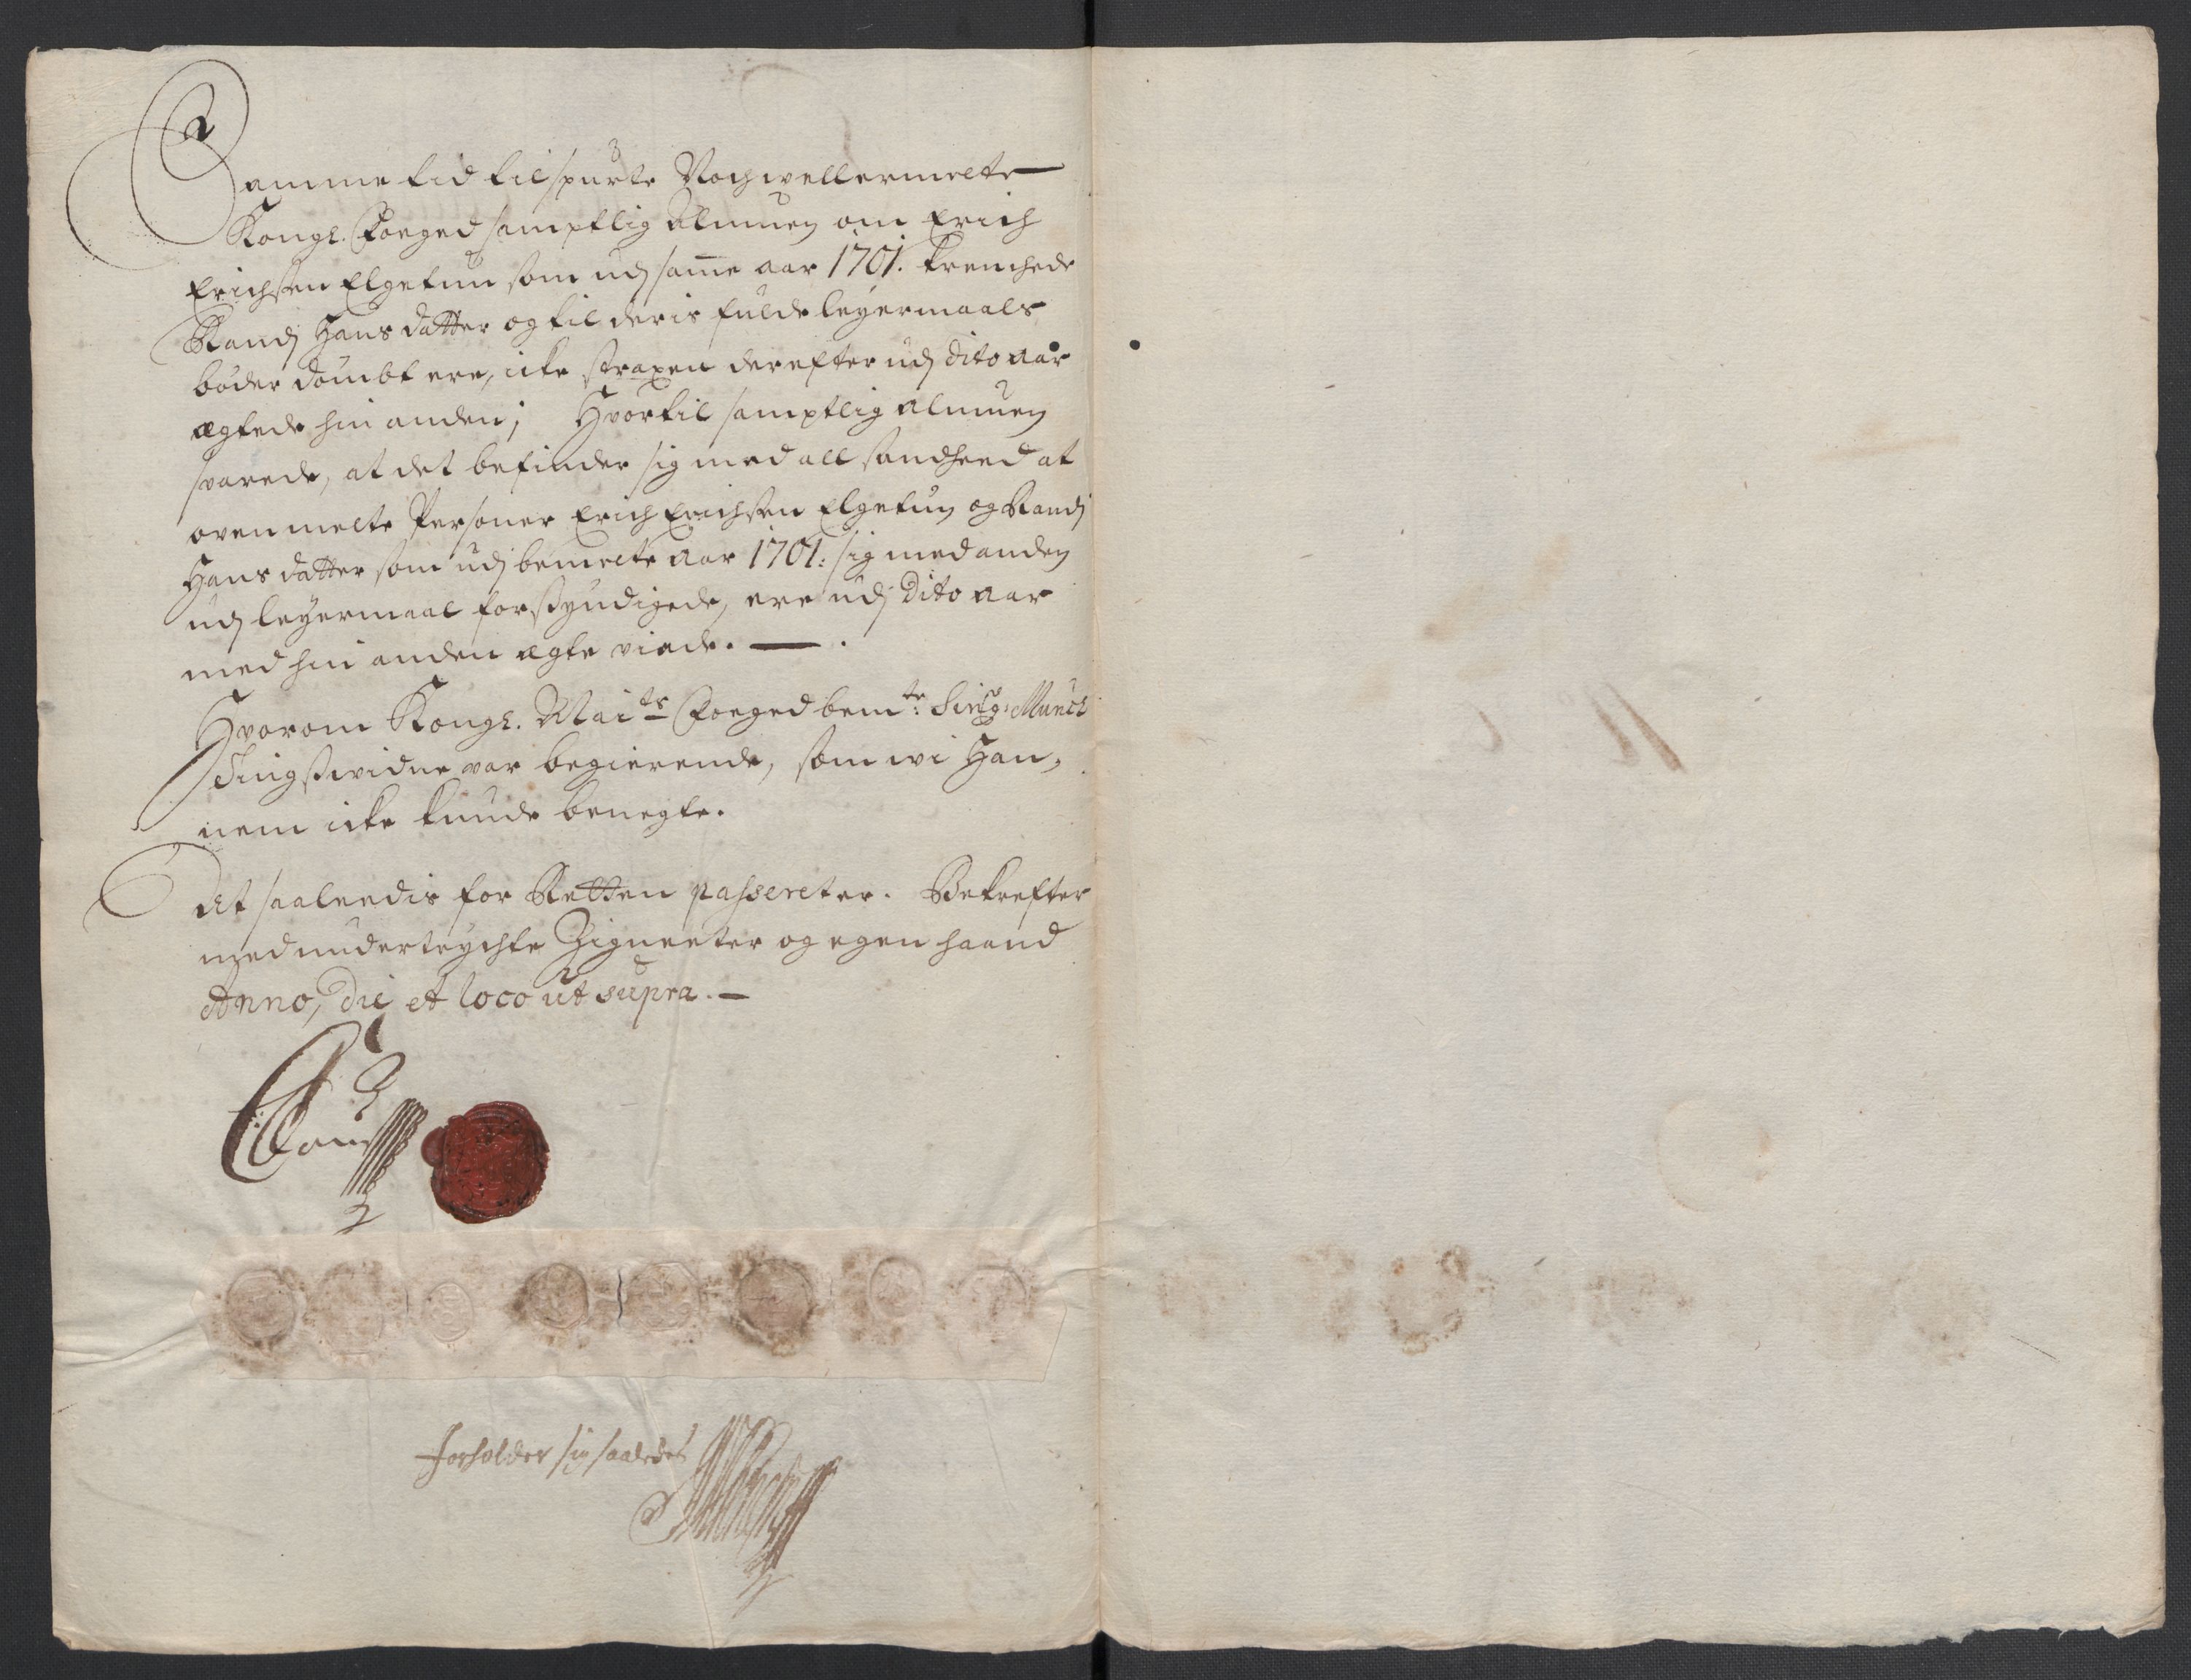 Samme tid tilspurte Vochwellermelte
Kongl. Foeged samptlig Almuen om Erich
Erichsen Elgetun som udj same aar 1701. krenchede
Randj Hans datter og til deris fulde leyermaals
bøder dømbt ere, icke straxen derefter udj dito aar
ægtede hin anden; Hvortil samptlig almuen
svarede, at det befinder sig med all sandheed at
ovenmelte Personer Erich Erichsen Elgetun og Randj
Hans datter som udj bemelte aar 1701: sig med anden
udj leyermaal forsyndigede, ere udj Dito aar
med hin anden ægte viede. — .
Hvorom Kongl. Maits Foeged bemte: Sr Munch
Tingswidne var begierende, som wi Han,
nem icke kunde benegte.
Det saaleedis for Retten passeret er. Bekrefter
med underteychte Zigneeter og egen haand
Anno, die et loco ut supra. —
forholder sig saaledes